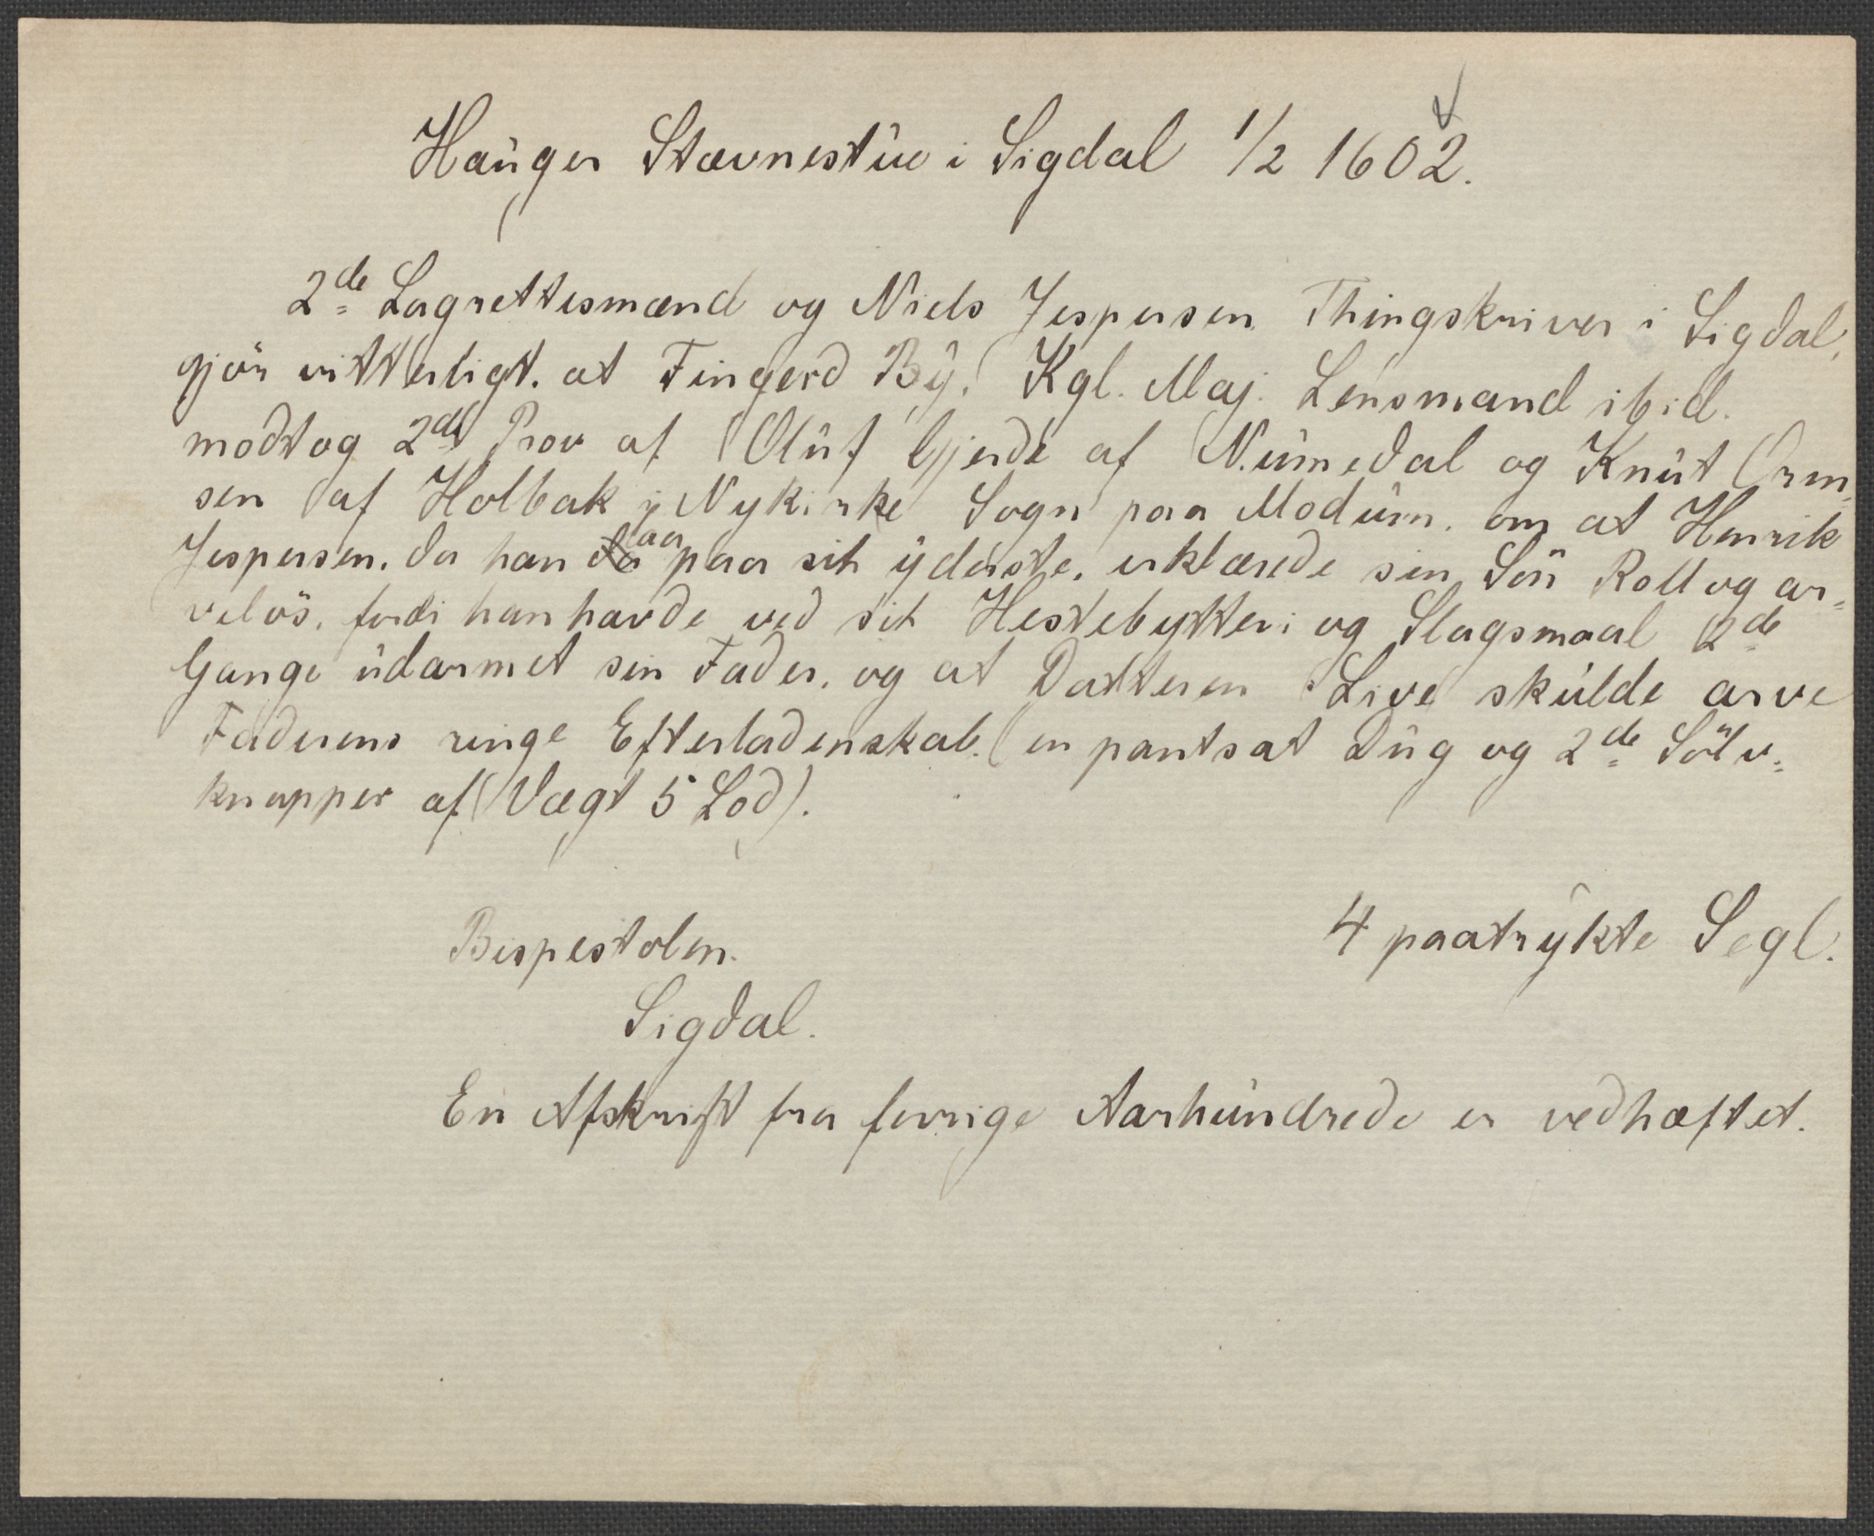 Hauger Stævnestue i Sigdal 1/2 1602.
2de Lagrettesmænd og Niels Jespersen Thingskriver i Sigdal,
gjör vitterligt. at Fingerd By. Kgl. Maj. Lensmand ibid.
modtog 2de Prov af Oluf Gjerde af Numedal og Knut Orm,
sen af Holbak i Nykirke Sogn paa Modum. om at Henrik
Jespersen. da han laa paa sit yderste. erklærede sin Sön Roll og ar=
velös. fordi han havde ved sit Hestebytteri og Slagsmaal 2de
Gange udarmet sin Fader. og at Datteren Live skulde arve
Faderens ringe Efterladenskab. (en pantsat Dug og 2de Sölv=
knapper af Vægt 5 Lod).
4 paatrykte Segl.
Bispestolen.
Sigdal.
En Afskrift fra forrige Aarhundrede er vedhæftet.